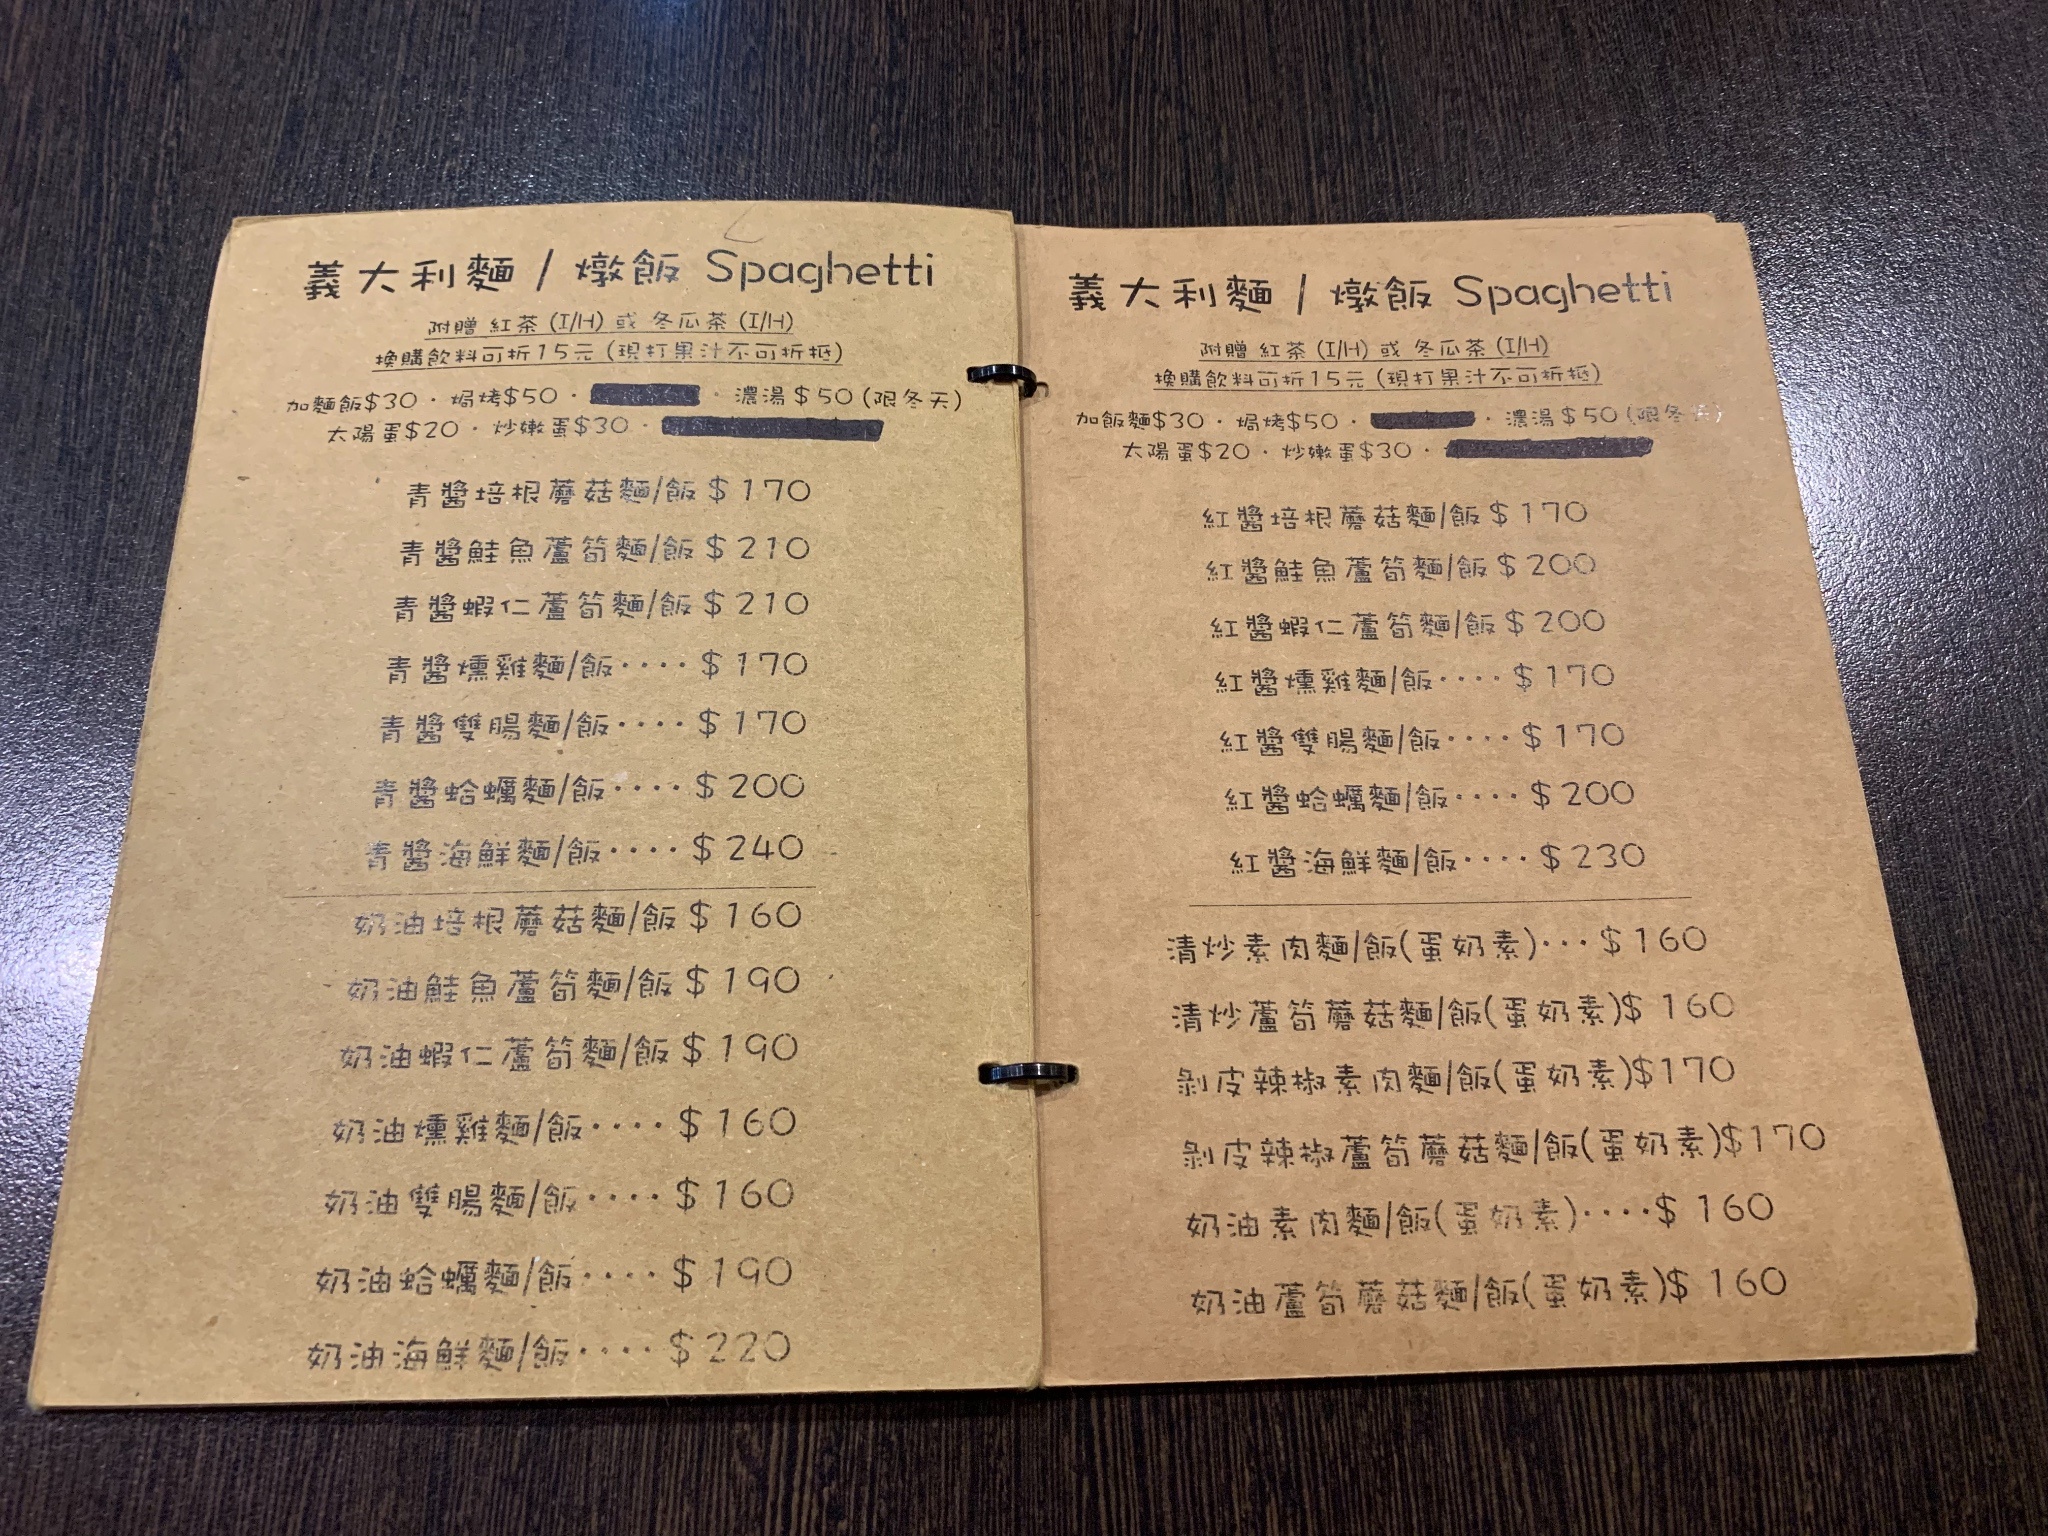 義大利麵 / 燉飯 Spaghetti
附贈 紅茶 (I/H) 或 冬瓜茶 (I/H)
換購飲料可折15元 (現打果汁不可折抵)
加麵飯$30 · 焗烤$50 · · 濃湯$50 (限冬天)
太陽蛋$20 · 炒嫩蛋$30 ·
青醬培根蘑菇麵/飯 $170
青醬鮭魚蘆筍麵/飯 $210
青醬蝦仁蘆筍麵/飯 $210
青醬燻雞麵/飯···· $170
青醬雙腸麵/飯···· $170
青醬蛤蠣麵/飯···· $200
青醬海鮮麵/飯···· $240
奶油培根蘑菇麵/飯 $160
奶油鮭魚蘆筍麵/飯 $190
奶油蝦仁蘆筍麵/飯 $190
奶油燻雞麵/飯···· $160
奶油雙腸麵/飯···· $160
奶油蛤蠣麵/飯···· $190
奶油海鮮麵/飯···· $220
義大利麵 / 燉飯 Spaghetti
附贈 紅茶 (I/H) 或 冬瓜茶 (I/H)
換購飲料可折15元 (現打果汁不可折抵)
加飯麵$30 · 焗烤$50 · · 濃湯$50 (限冬天)
太陽蛋$20 · 炒嫩蛋$30 ·
紅醬培根蘑菇麵/飯 $170
紅醬鮭魚蘆筍麵/飯 $200
紅醬蝦仁蘆筍麵/飯 $200
紅醬燻雞麵/飯···· $170
紅醬雙腸麵/飯···· $170
紅醬蛤蠣麵/飯···· $200
紅醬海鮮麵/飯···· $230
清炒素肉麵/飯(蛋奶素)··· $160
清炒蘆筍蘑菇麵/飯(蛋奶素)$ 160
剝皮辣椒素肉麵/飯(蛋奶素)$170
剝皮辣椒蘆筍蘑菇麵/飯(蛋奶素)$170
奶油素肉麵/飯(蛋奶素)····$ 160
奶油蘆筍蘑菇麵/飯(蛋奶素)$ 160